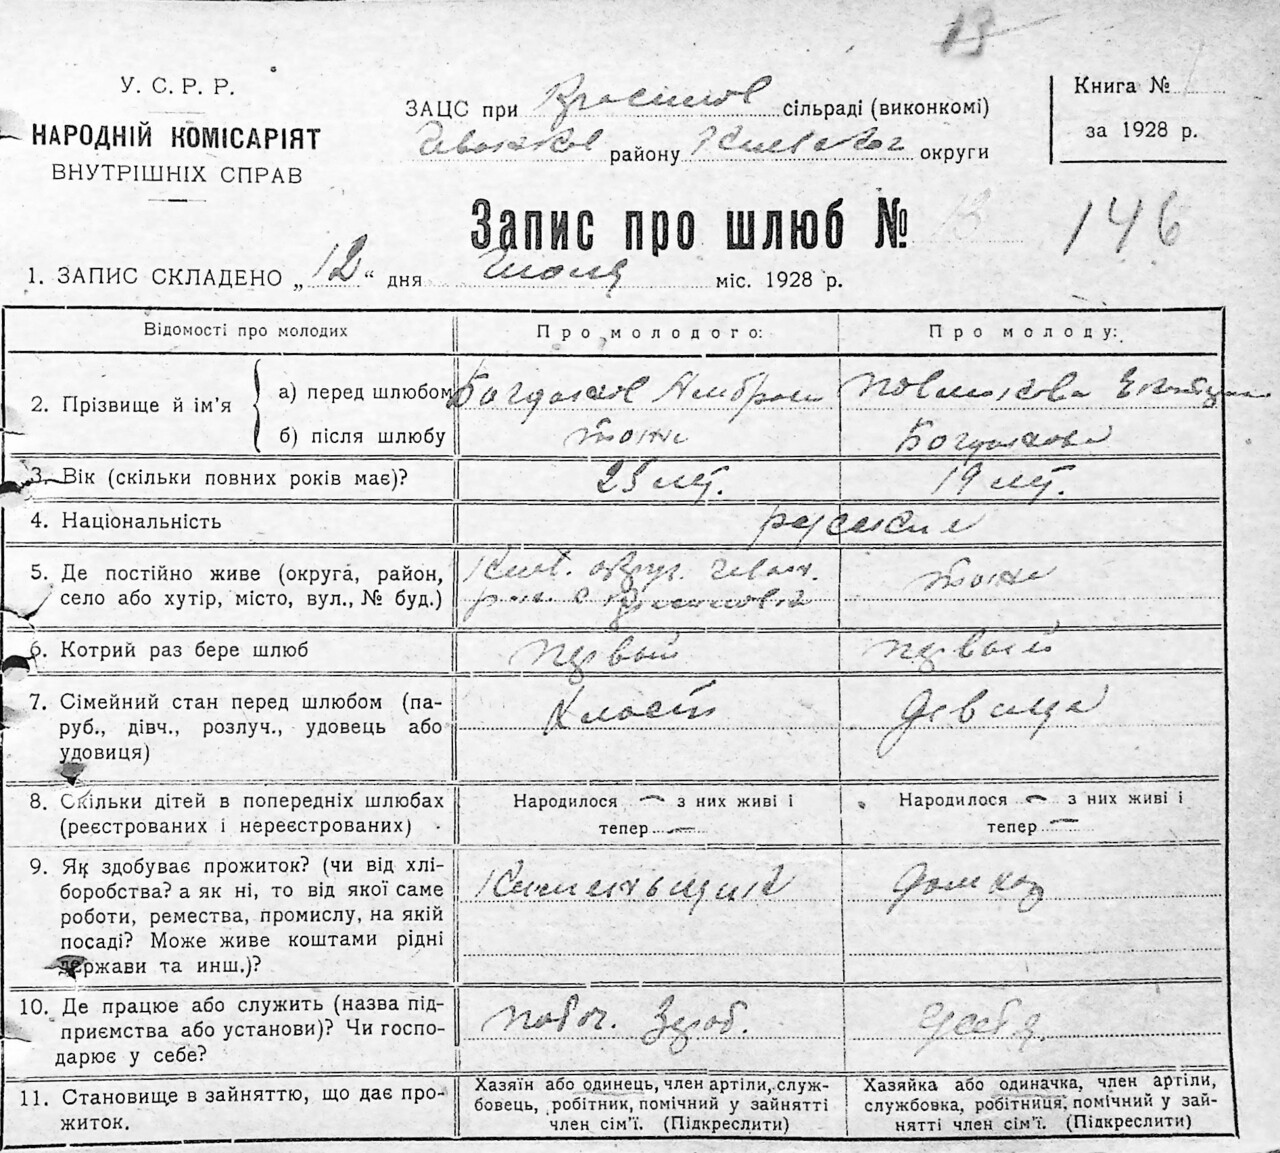 13
У. С. Р. Р.
НАРОДНІЙ КОМІСАРІЯТ
ВНУТРІШНІХ СПРАВ
ЗАЦС при сільраді (виконкомі)
району округи
Книга №
за 1928 р.
Запис про шлюб № 13 146
1. ЗАПИС СКЛАДЕНО „12“ дня міс. 1928 р.
Відомості про молодих
Про молодого:
Про молоду:
2. Прізвище й ім’я
а) перед шлюбом
б) після шлюбу
тоже
Богданова
3. Вік (скільки повних років має)?
25 лет.
19 лет.
4. Національність
русские
5. Де постійно живе (округа, район,
село або хутір, місто, вул., № буд.)
тоже
6. Котрий раз бере шлюб
первый
первый
7. Сімейний стан перед шлюбом (па-
руб., дівч., розлуч., удовець або
удовиця)
холост
девица
8. Скільки дітей в попередніх шлюбах
(реєстрованих і нереєстрованих)
Народилося — з них живі і
тепер —
Народилося — з них живі і
тепер —
9. Як здобуває прожиток? (чи від хлі-
боробства? а як ні, то від якої саме
роботи, ремества, промислу, на якій
посаді? Може живе коштами рідні
держави та инш.)?
домхоз
10. Де працює або служить (назва під-
приємства або установи)? Чи госпо-
дарює у себе?
11. Становище в зайняттю, що дає про-
житок.
Хазяїн або одинець, член артіли, служ-
бовець, робітник, помічний у зайнятті
член сім’ї. (Підкреслити)
Хазяйка або одиначка, член артіли,
службовка, робітниця, помічний у зай-
нятті член сім’ї. (Підкреслити)